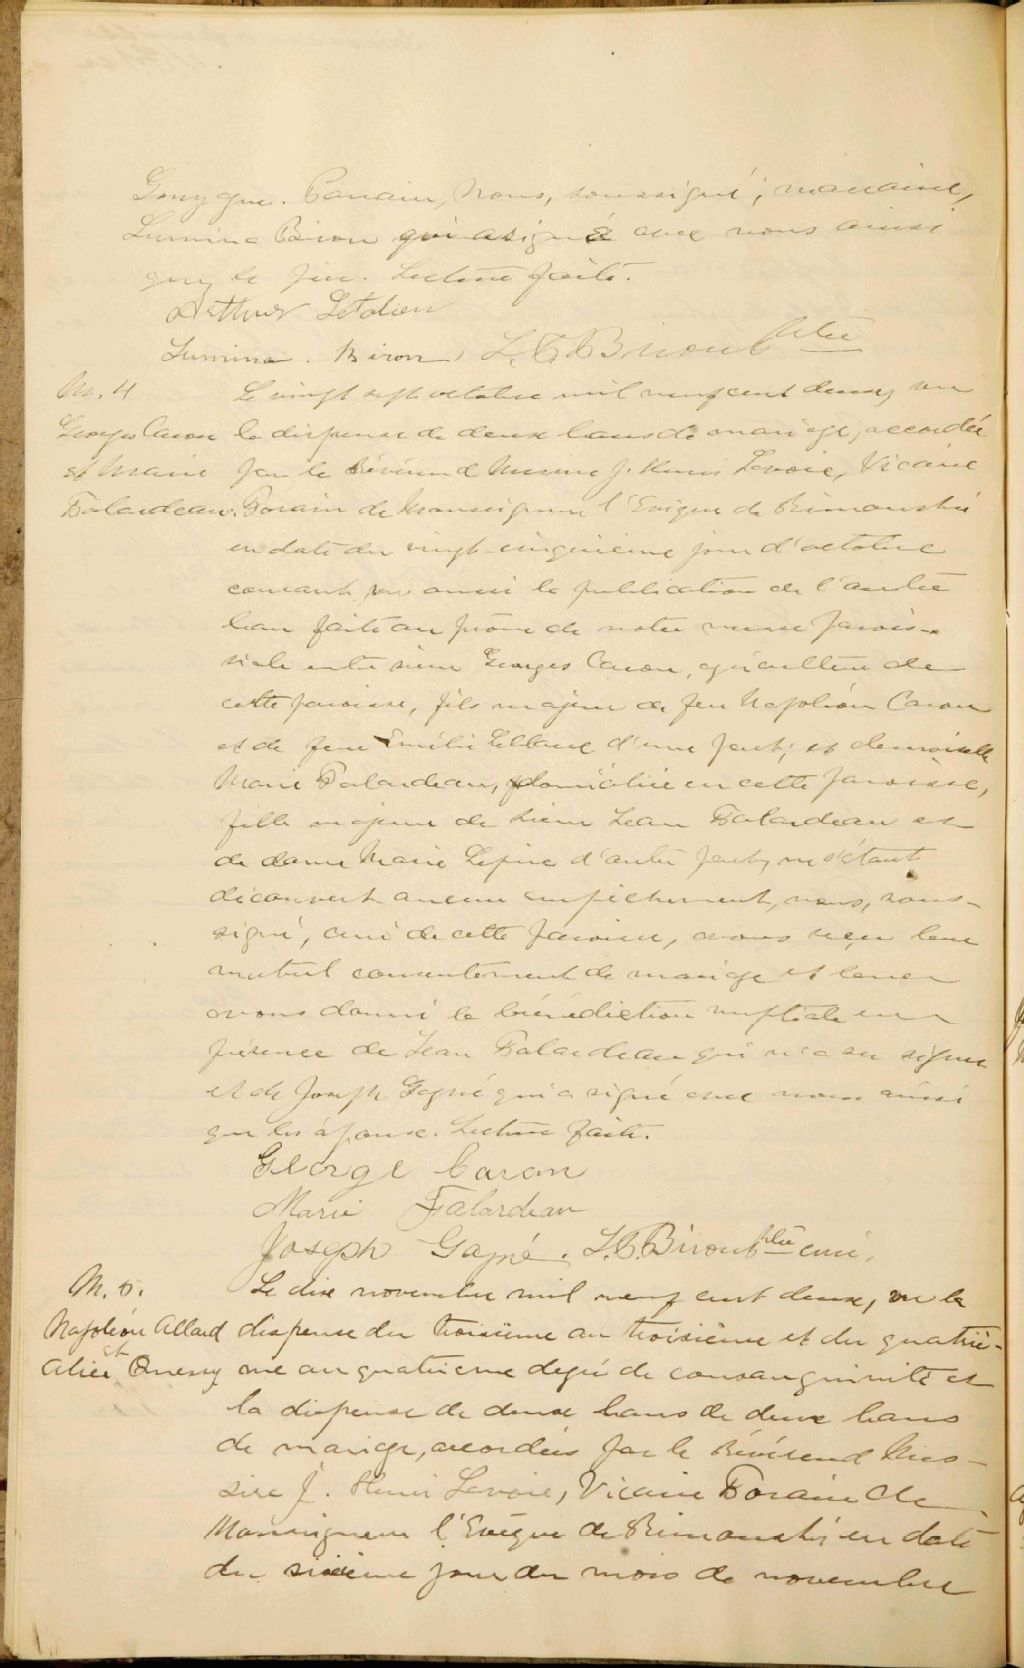 que. Parrain, nous, soussigné, marraine,
Lumina Biron qui a signé avec nous ainsi
que le père. Lecture faite.
Arthur Letalien
Lumina Biron
M. 4
Georges Caron
et Marie
Falardeau.
Le vingt sept octobre mil neuf cent deux, vu
la dispense de deux bans de mariage, accordée
par le Révérend Messire J. Henri Lavoie, Vicaire
Forain de Monseigneur l'Evêque de Rimouski
en date du vingt-cinquième jour d'octobre
courant, vu aussi la publication de l'autre
ban faite au prône de notre messe parois-
siale entre sieur Georges Caron, cultivateur de
cette paroisse, fils majeur de feu Napoléon Caron
et de feue Emélie Leblanc d'une part; et demoiselle
Marie Falardeau, domiciliée en cette paroisse,
fille majeure de sieur Jean Falardeau et
de dame Marie Lepire d'autre part, ne s'étant
découvert aucun empêchement, nous, sous-
signé, curé de cette paroisse, avons reçu leur
mutuel consentement de mariage et leur
avons donné la bénédiction nuptiale en
présence de Jean Falardeau qui n'a su signer
et de Joseph Gagné qui a signé avec nous ainsi
que les époux. Lecture faite.
George Caron
Marie Falardeau
Joseph Gagné. ptre curé.
M. 5.
Napoléon Allard
et
Alice
Le dix novembre mil neuf cent deux, vu la
dispense du troisième au troisième et du quatriè-
me au quatrième degré de consanguinité et
la dispense de deux bans de deux bans
de mariage, accordées par le Révérend Mes-
sire J. Henri Lavoie, Vicaire Forain de
Monseigneur l'Evêque de Rimouski en date
du sixième jour du mois de novembre